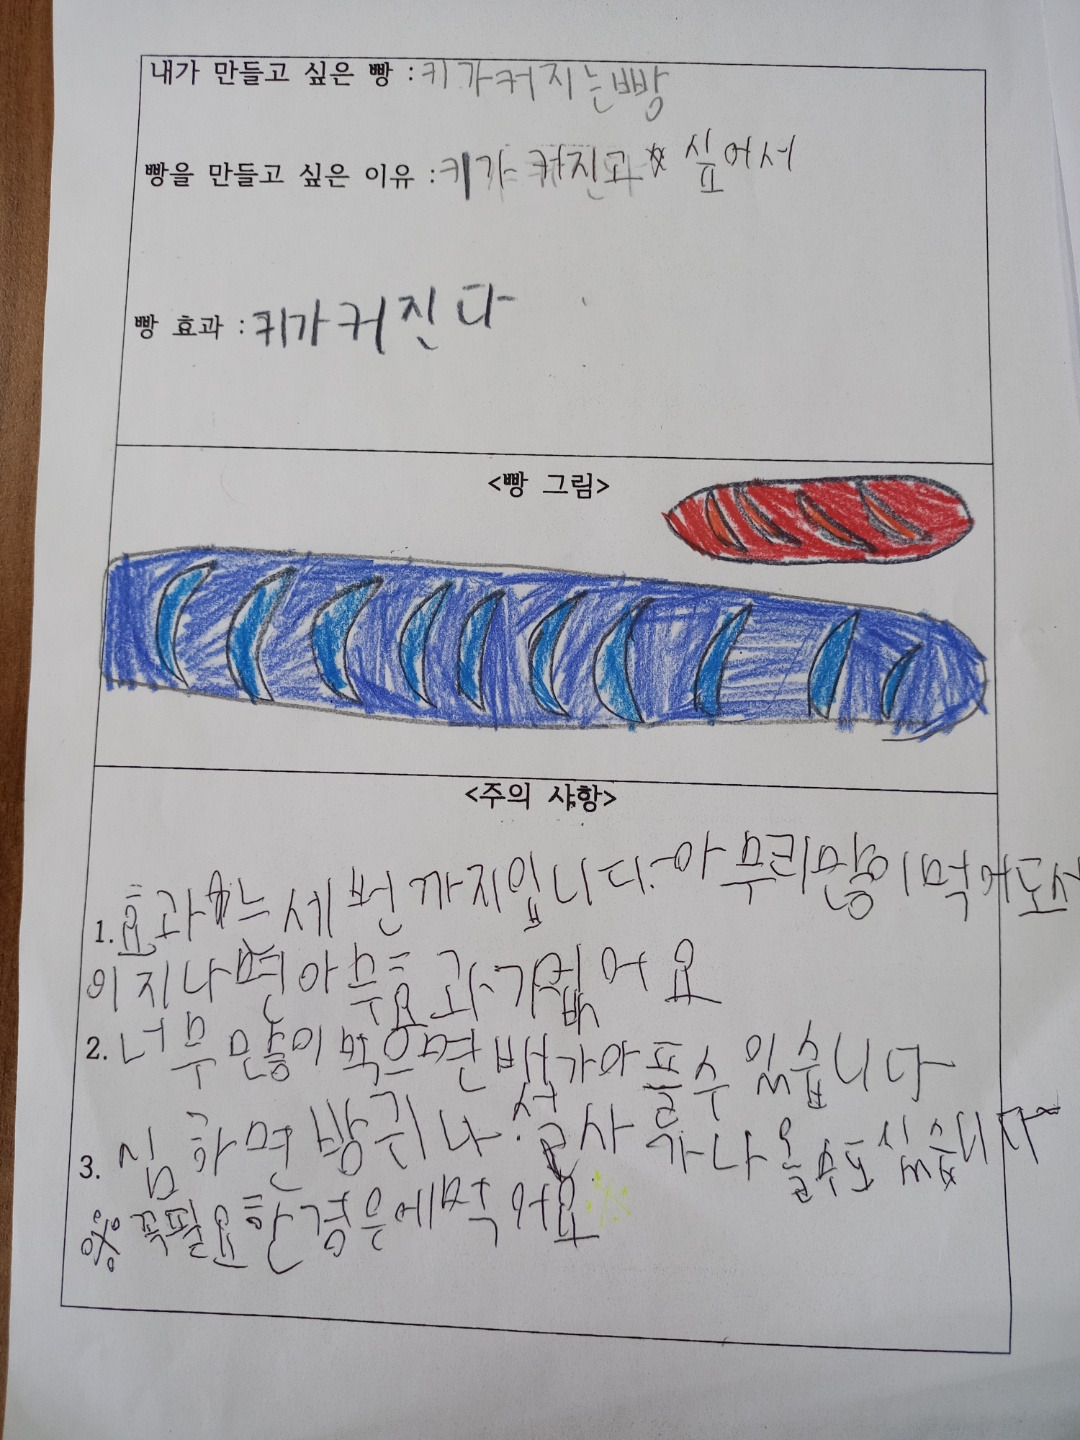 내가 만들고 싶은 빵 : 키가커지는빵
빵을 만들고 싶은 이유 : 키가 커진고 싶어서
빵 효과 : 키가커진다
<빵 그림>
<주의 사항>
1. 효과는 세번까지입니다. 아무리많이먹어도
이지나면아무효과가없어요
2. 너무많이먹으면배가아플수 있습니다
3. 심하면방귀나 설사가나올수도있습니다
※ 꼭필요한경우에먹어요※